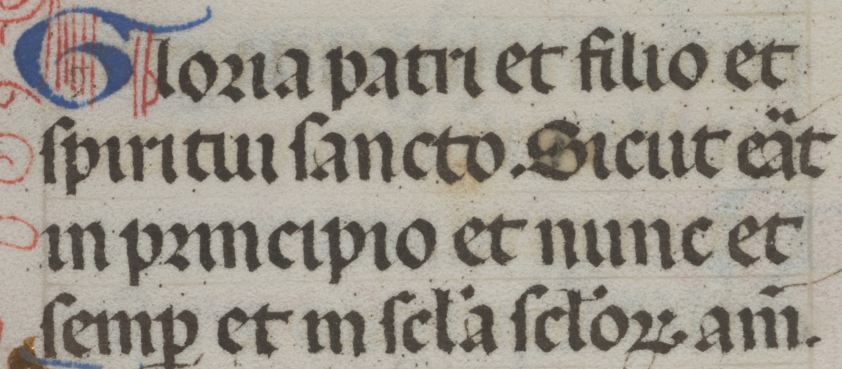 Gloria patri et filio et
spiritui sancto. Sicut eat
in principio et nunc et
semꝑ et in scla sclorꝝ am.